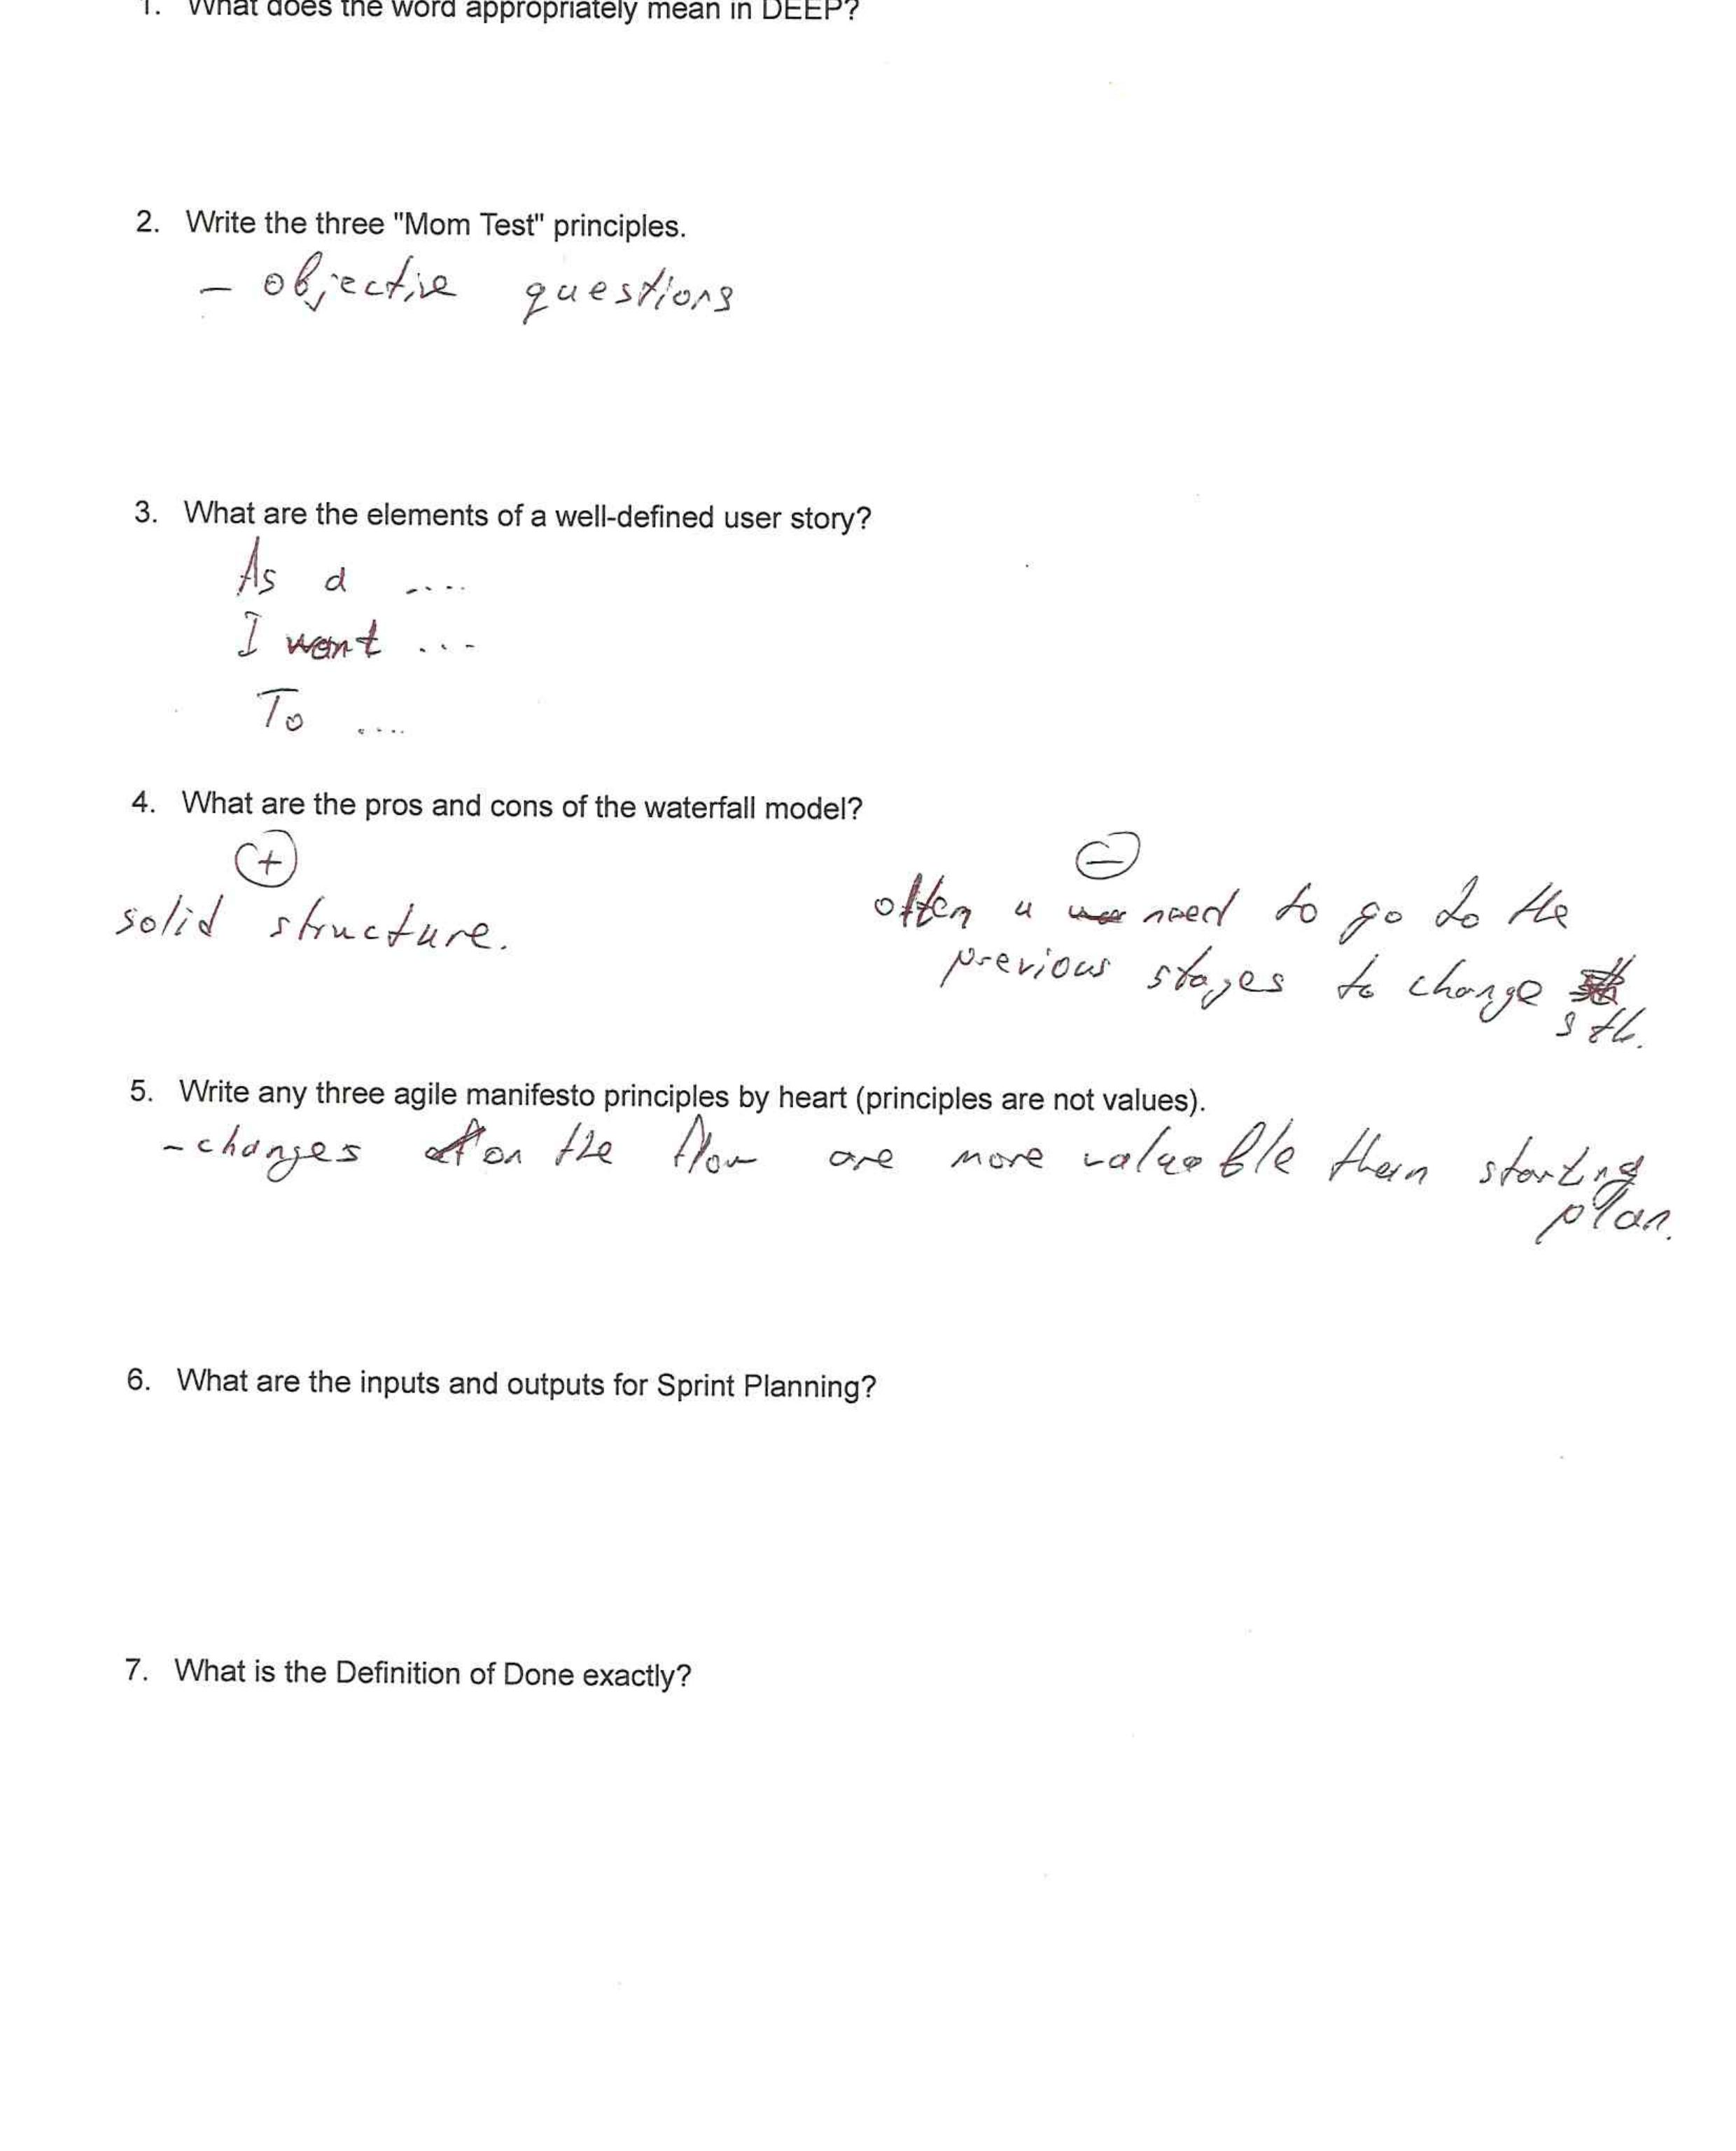 1. What does the word appropriately mean in DEEP?
2. Write the three "Mom Test" principles.
- objective questions
3. What are the elements of a well-defined user story?
As a ....
I want ...
To ....
4. What are the pros and cons of the waterfall model?
+ -
solid structure.
often u need to go to the
previous stages to change
sth.
5. Write any three agile manifesto principles by heart (principles are not values).
- changes on the flow are more valuable than starting
plan.
6. What are the inputs and outputs for Sprint Planning?
7. What is the Definition of Done exactly?